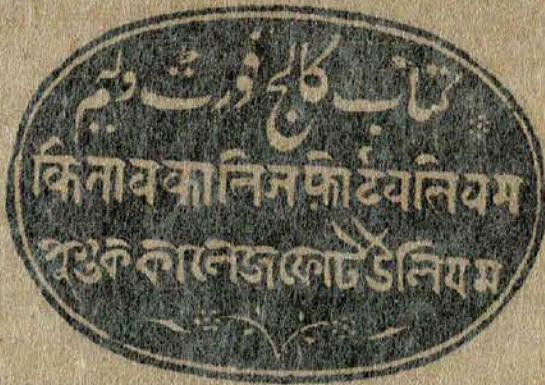 کتاب کالج فورت ولیم
किताबकालिजफ़ोर्टवलियम
পুস্তককালেজফোর্টউলিয়ম